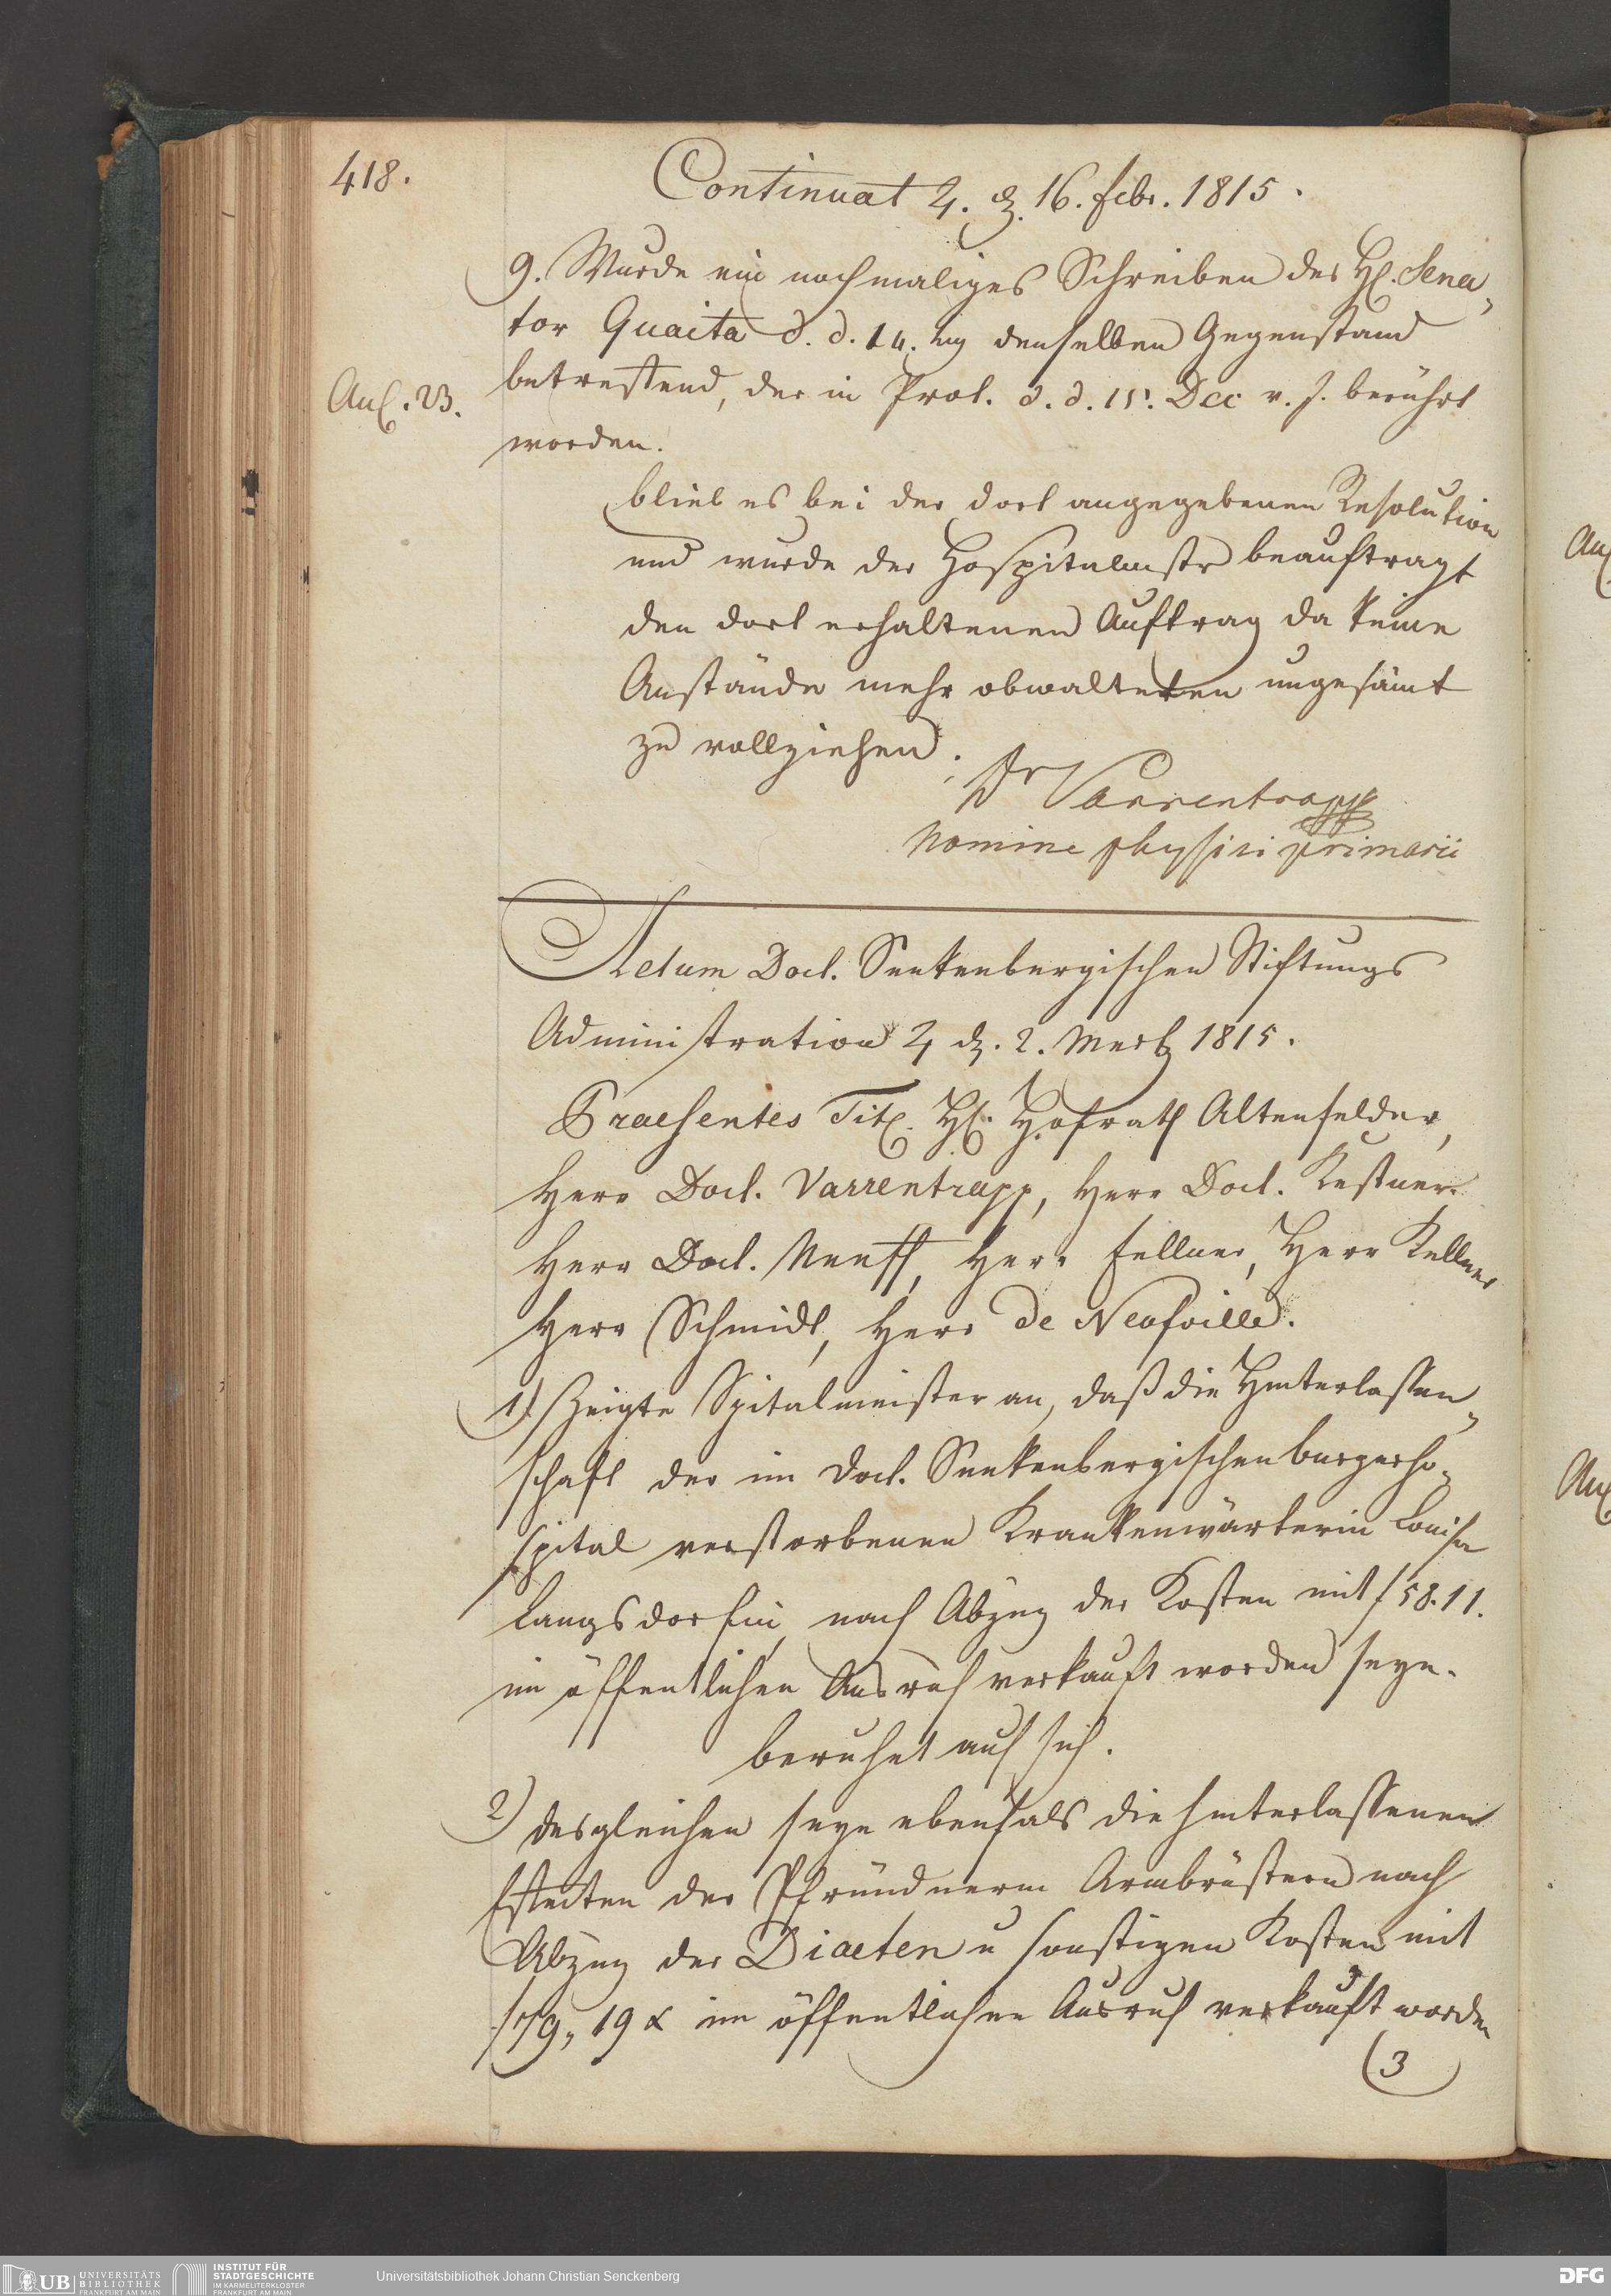 418.
Continuat ♃. d. 16. febr. 1815.
9. Wurde ein nochmaliges Schreiben des H. Sena„
tor Guaita d. d. 14. huj denselben Gegenstand
betreffend, der in Prot. d. d. 15. Dec v. J. berührt
Anl. 23.
worden.
blieb es bei der dort angegebenen Resolution
und wurde der Hospitalmstr beauftragt
den dort erhaltenen Auftrag da keine
Anstände mehr obwalteten ungesäumt
zu vollziehen.
Dr Varrentrapp
Nomine physici primarii
Actum Doct. Senkenbergischen Stiftungs
Administration ♃ d. 2. Merz 1815.
Praesentes Tit. H. Hofrath Altenfelder,
Herr Doct. Varrentrapp, Herr Doct. Kestner
Herr Doct. Neeff, Herr Fellner, Herr Kellner
Herr Schmidt, Herr de Neufville.
1) Zeigte Spitalmeister an, daß die Hinterlassen„
schaft der im Doct. Senkenbergischen burgerho„
spital verstorbenen Krankenwärterin Louisa
Langsdorfin, nach Abzug der Kosten mit f 58. 11.
im öffentlichen Ausruf verkauft worden seye.
beruhet auf sich.
2) desgleichen seye ebenfals die hinterlassenen
Effecten der Pfründnerin Armbrüstern nach
Abzug der Diaeten u sonstigen Kosten mit
f 79„ 19 x im öffentlichen Ausruf verkauft worden
3
Universitätsbibliothek Johann Christian Senckenberg
UB UNIVERSITÄTS
BIBLIOTHEK
FRANKFURT AM MAIN
INSTITUT FÜR
STADTGESCHICHTE
IM KARMELITERKLOSTER
FRANKFURT AM MAIN
DFG